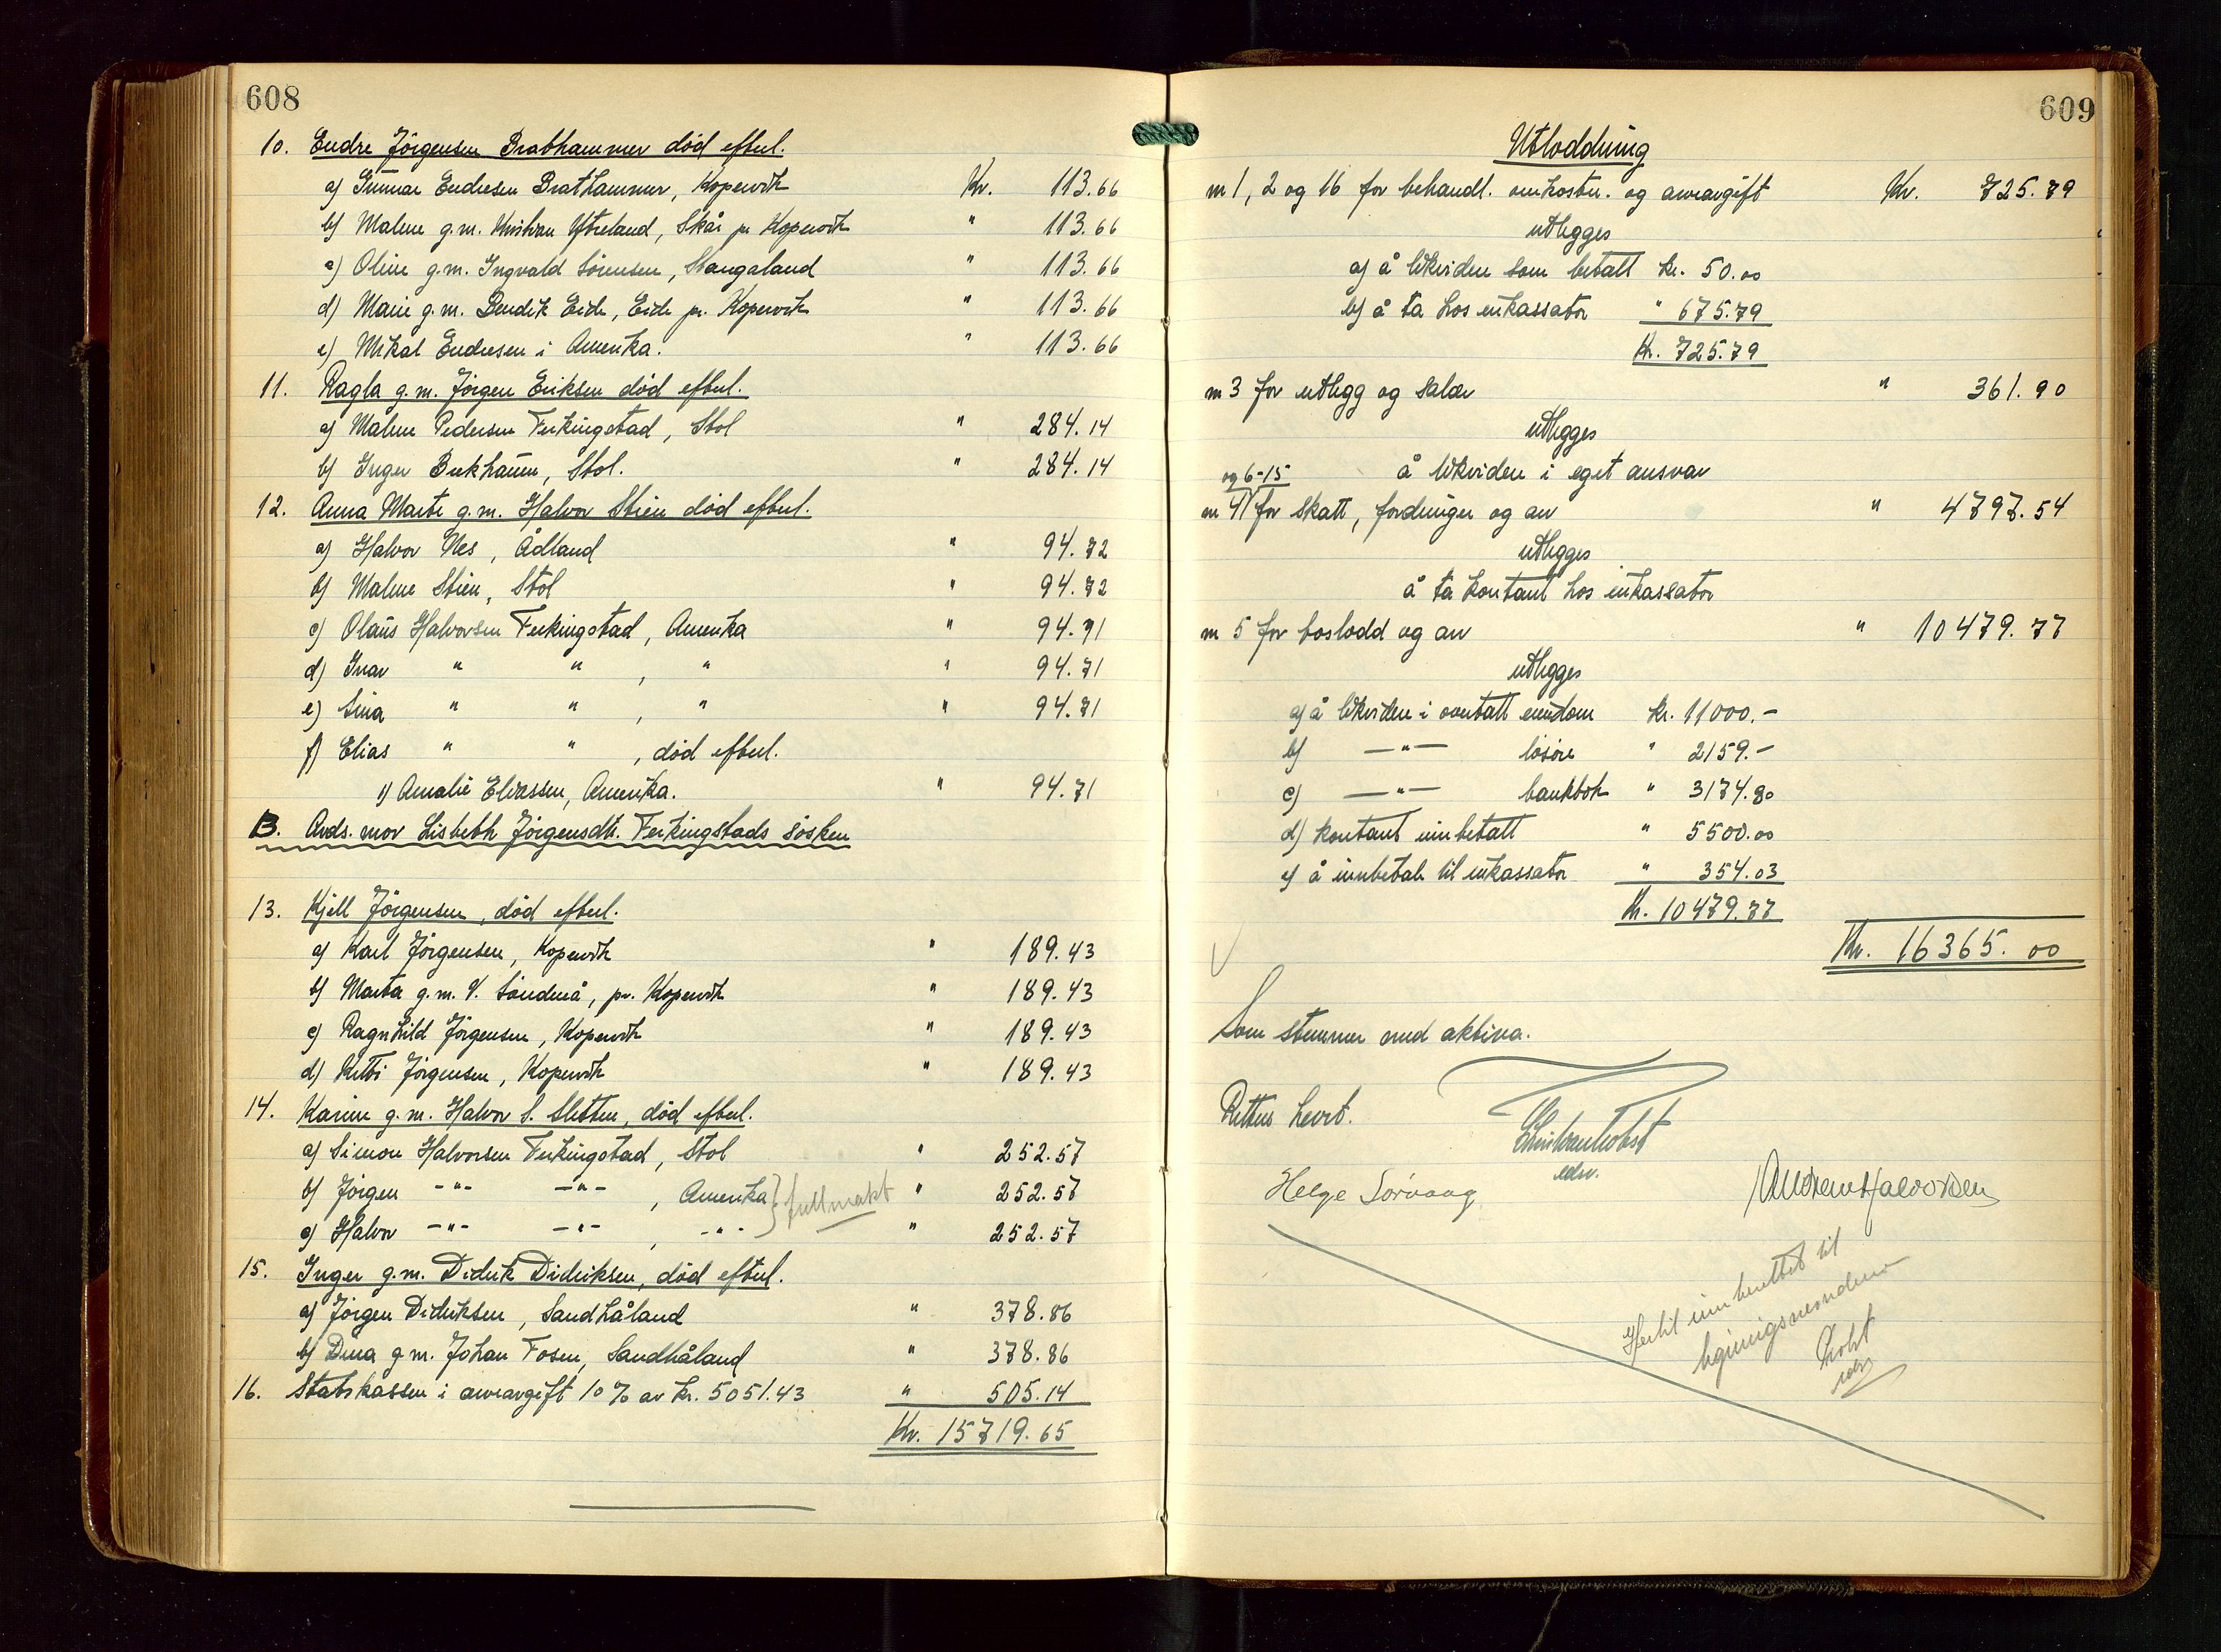 608
10. Endre Jörgensen Brathammer död efterl.
a) Gunnar Endresen Brathammer, Kopervik Kr. 113.66
b) Malene g.m. Kristian Ytreland, Skår pr Kopervik " 113.66
c) Oline g.m. Ingvald Sörensen, Stangaland " 113.66
d) Marie g.m. Bendik Eide, Eide pr. Kopervik " 113.66
e) Mikal Endresen i Amerika. " 113.66
11. Ragla g.m. Jörgen Eriksen död efterl.
a) Malene Pedersen Ferkingstad, Stol " 284.14
b) Inger Birkhaum, Stol. " 284.14
12. Anna Marte g.m. Halvor Stien död efterl.
a) Halvor Nes, Ådland " 94.72
b) Malene Stien, Stol " 94.72
c) Olaus Halvorsen Ferkingstad, Amerika " 94.71
d) Ivar " " , " " 94.71
e) Sina " " , " " 94.71
f) Elias " " , död efterl.
1) Amalie Eliassen, Amerika. " 94.71
B. Avds. mor Lisbeth Jörgensdtr. Ferkingstads sösken
13. Kjell Jörgensen, död efterl.
a) Karl Jörgensen, Kopervik " 189.43
b) Marta g.m. V. Sönderå, pr. Kopervik " 189.43
c) Ragnhild Jörgensen, Kopervik " 189.43
d) Kitti Jörgensen, Kopervik " 189.43
14. Karine g.m. Halvor S. Sletten, död efterl.
a) Simon Halvorsen Ferkingstad, Stol " 252.57
b) Jörgen -"- -"- , Amerika } fullmakt " 252.57
c) Halvor -"- -"- , -"- " 252.57
15. Inger g.m. Didrik Didriksen, död efterl.
a) Jörgen Didriksen, Sandhåland " 378.86
b) Dina g.m. Johan Fosen, Sandhåland " 378.86
16. Statskassen i arveavgift 10 % av kr. 5051.43 " 505.14
Kr. 15719.65
609
Utloddning
nr 1, 2 og 16 for behandl. omkostn. og arveavgift Kr. 725.79
utlegges
a) å likviden som betalt kr. 50.00
b) å ta hos inkassator " 675.79
Kr. 725.79
nr 3 for utlegg og salær " 361.90
utlegges
å likviden i eget ansvar
og 6-15
nr 4 for skatt, fordringer og arv " 4797.54
utlegges
å ta kontant hos inkassator
nr 5 for boslodd og arv " 10479.77
utlegges
a) å likviden i overtatt eiendom kr. 11000.-
b) -"- lösöre " 2159.-
c) -"- bankbok " 3174.80
d) kontant innbetalt " 5500.00
e) å innbetale til inkassator " 354.03
Kr. 10479.77
Kr. 16365.00
Som stemmer med aktiva.
Retten hevet.
edsv.
Helge Sörvaag
Andreas Halvorsen
Hertil innberettet til
ligningsnevndene
Holst
edsv